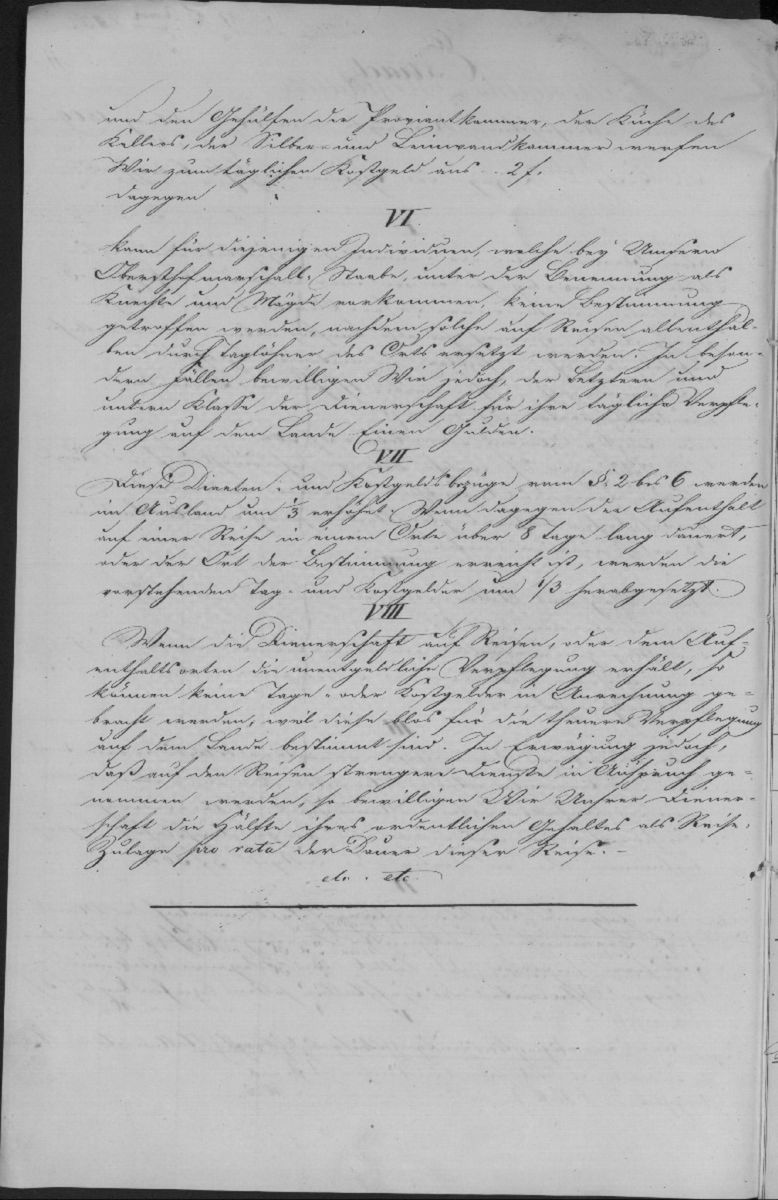 und den Gehülfen der Proviantkammer, der Küche des
Kellers, der Silber- und Leinwandkammer werfen
Wir zum täglichen Kostgeld aus . . 2 f.
dagegen
VI
kann für diejenigen Individuen, welche bey Unserm
Obersthofmarschall-Staabe, unter der Benennung als
Knechte und Mägde vorkommen, keine Bestimmung
getroffen werden, nachdem solche auf Reisen allenthal-
ben durch Taglöhner des Orts ersetzt werden. In beson-
dern Fällen bewilligen Wir jedoch, der Letztern und
untern Klasse der Dienerschaft für ihre tägliche Verpfle-
gung auf dem Lande Einen Gulden.
VII
Diese Diaeten- und Kostgeldsbezüge vom §. 2 bis 6 werden
im Ausland um 1/3 erhöhet. Wenn dagegen der Aufenthalt
auf einer Reise in einem Orte über 8 Tage lang dauert,
oder der Ort der Bestimmung erreicht ist, werden die
vorstehenden Tag- und Kostgelder um 1/3 herabgesetzt.
VIII
Wenn die Dienerschaft auf Reisen, oder dem Auf-
enthaltsorten die unentgeldliche Verpflegung erhält, so
können keine Tage- oder Kostgelder in Anrechnung ge-
bracht werden, weil diese blos für die theuere Verpflegung
auf dem Lande bestimmt sind. In Erwägung jedoch,
daß auf den Reisen strengere Dienste in Anspruch ge-
nommen werden, so bewilligen Wir Unsrer Diener-
schaft die Hälfte ihres ordentlichen Gehaltes als Reise-
Zulage pro rata der Dauer dieser Reise. –
etc. etc.